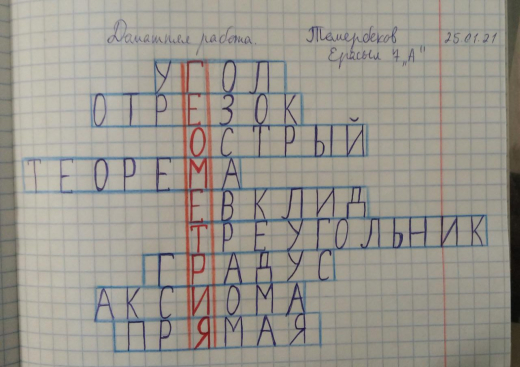 Домашняя работа. Темербеков 25.01.21
Ерасыл 7 „А"
УГОЛ
ОТРЕЗОК
ОСТРЫЙ
ТЕОРЕМА
ЕВКЛИД
ТРЕУГОЛЬНИК
ГРАДУС
АКСИОМА
ПРЯМАЯ